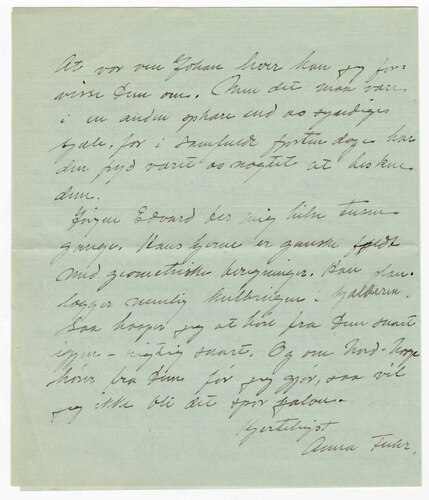 At vor ven Johan lever kan jeg for-
visse Dem om. Men det maa være
i en anden sphære end os syndiges
sjæle, for i samfulde fjorten dage har
den fryd været os nægtet at beskue
den.
Jørgen Edvard ber mig hilse tusen
gange. Hans hjerne er ganske fyldt
med geometriske beregninger. Han
nemlig i
Saa haaper jeg at høre fra Dem snart
igjen – rigtig snart. Og om Nord-Norge
hører fra Dem før jeg gjør, saa vil
jeg ikke bli det spor jaloux.
Hjerteligst
Anna Fuhr.